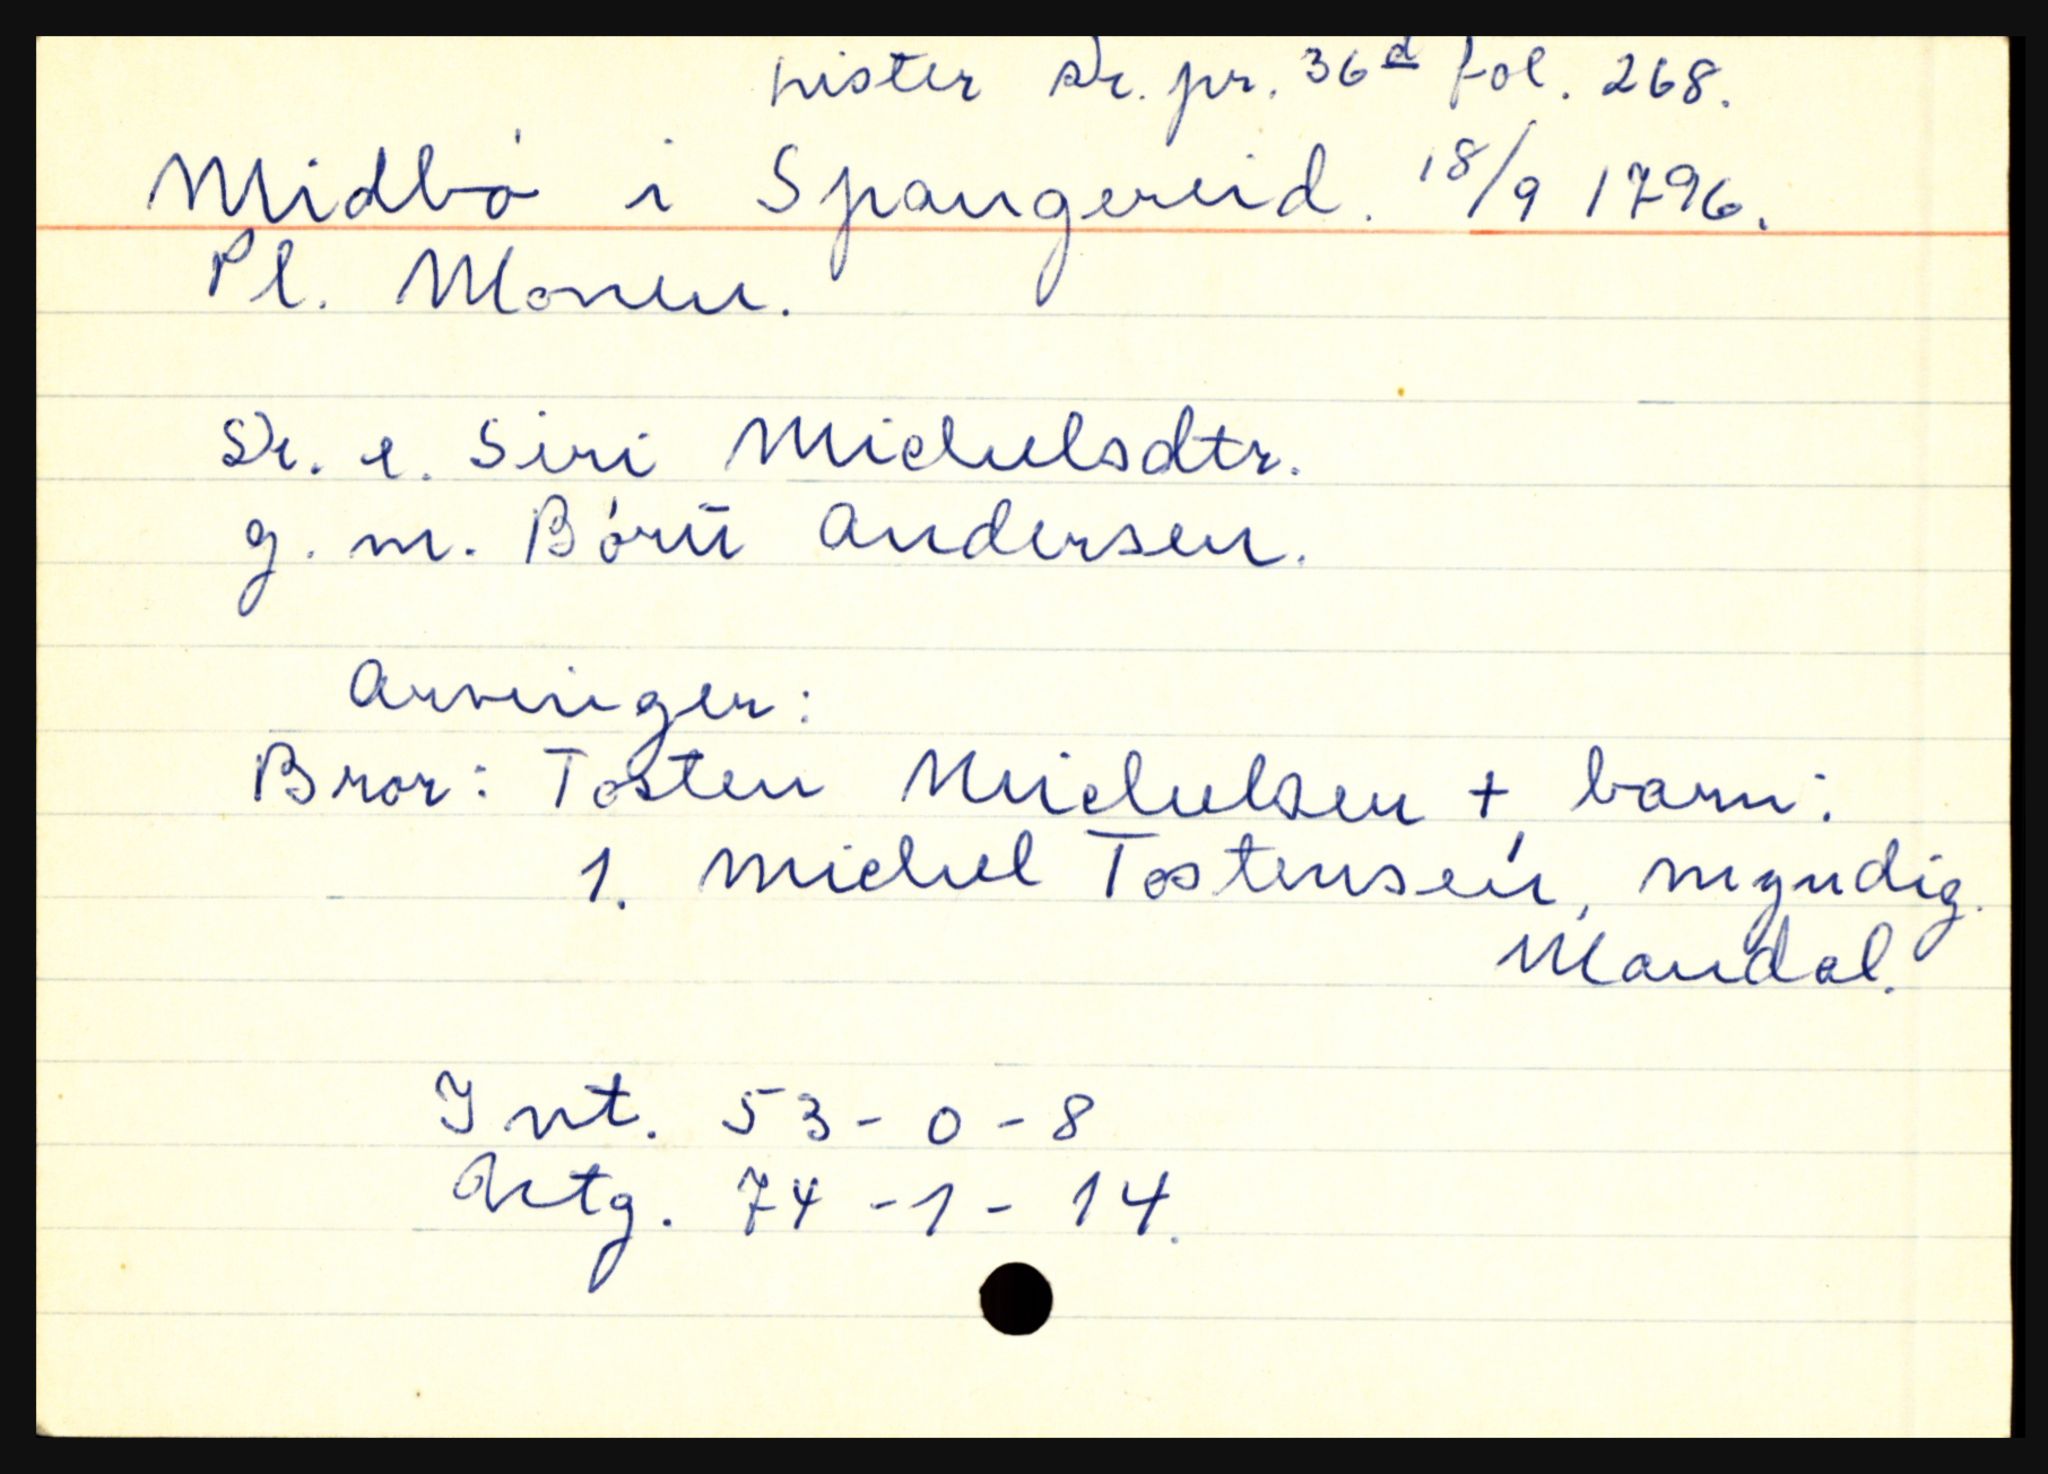 Lister Sk. pr. 36d fol. 268.
Midbó i Spangereid. 18/9 1796.
Pl. Monen.
Sk. e. Siri Michelsdtr.
g. m. Børū Andersen.
Arvinger:
Bror: Tosten Michelsen + barn:
1. Michel Tostensen, myndig.
Mandal.
Int. 53-0-8
Utg. 74-1-14.